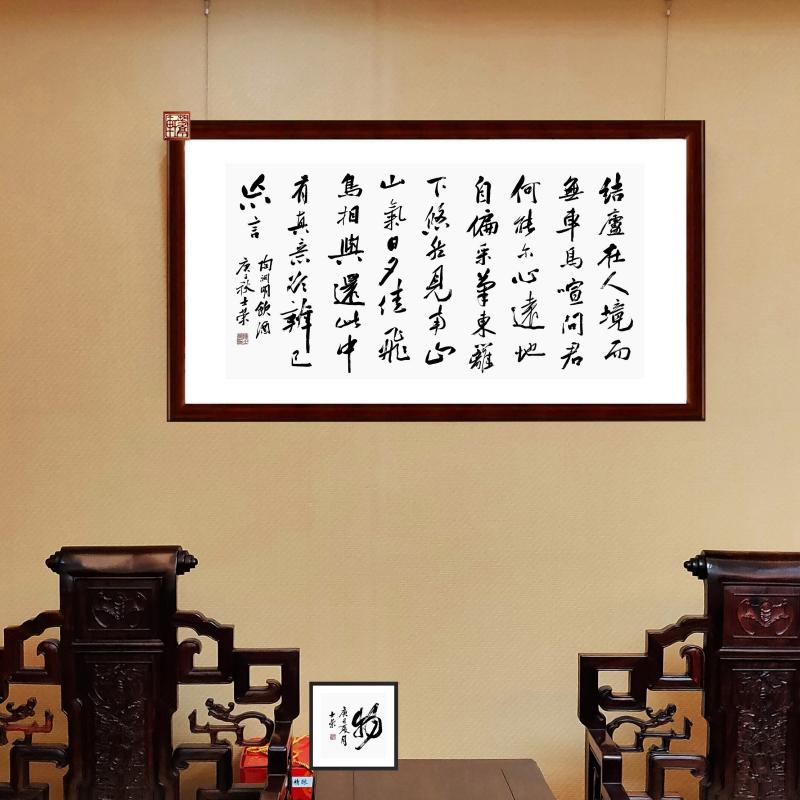 结廬在人境而
無車馬喧問君
何能尔心遠地
自偏采菊東籬
下悠然見南山
山氣日夕佳飛
鳥相與還此中
有真意欲辨已
忘言
陶渊明飲酒
庚子秋士荣
物
庚子夏月
士荣